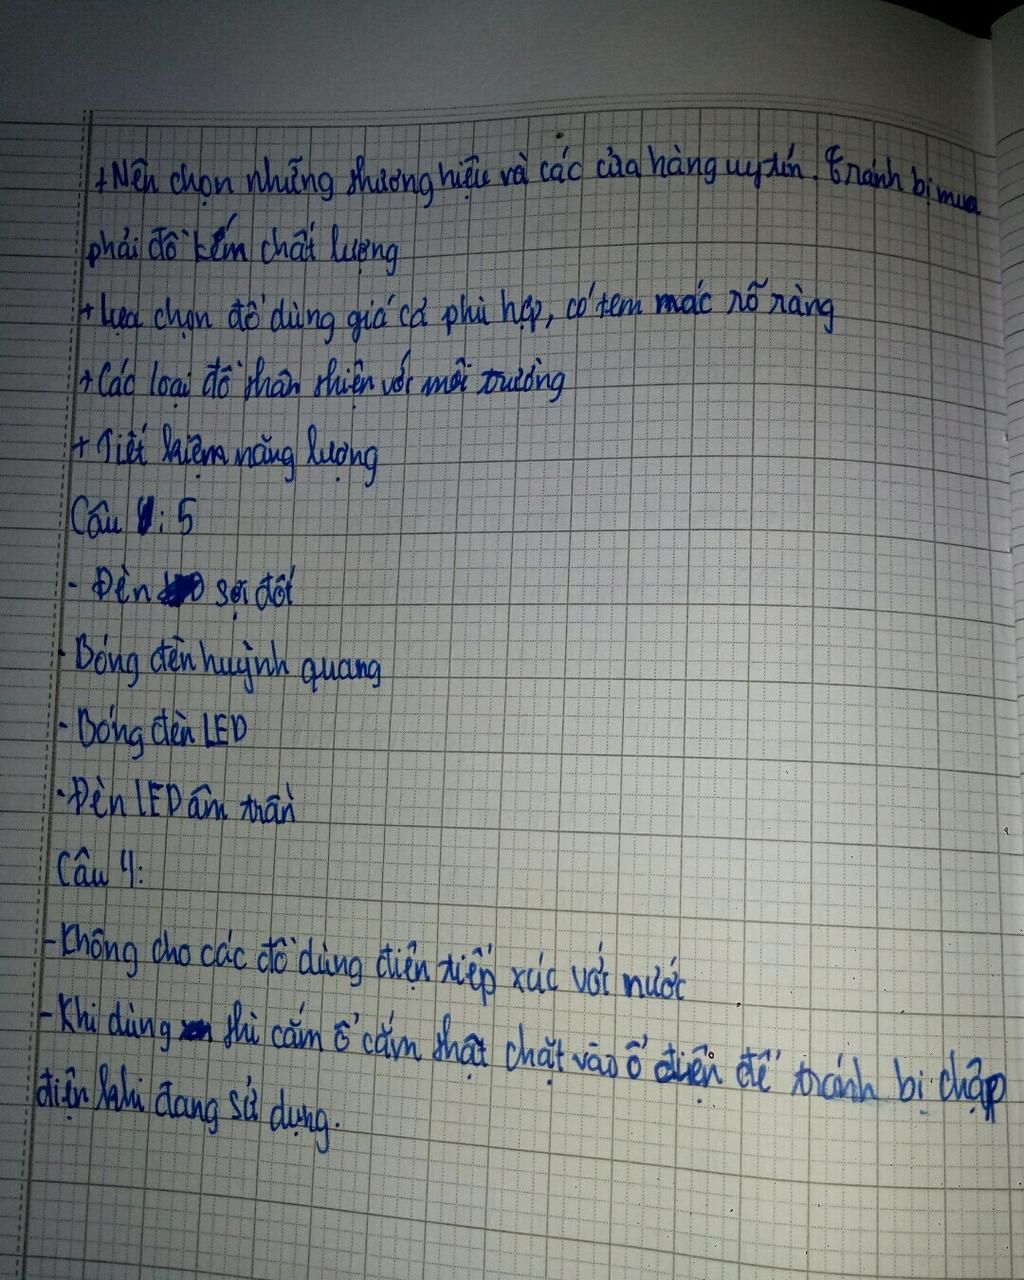 + Nên chọn những thương hiệu và các cửa hàng uy tín. Tránh bị mua
phải đồ kém chất lượng
+ Lựa chọn đồ dùng giá cả phù hợp, có tem mác rõ ràng
+ Các loại đồ thân thiện với môi trường
+ Tiết kiệm năng lượng
Câu : 5
- Đèn sợi đốt
- Bóng đèn huỳnh quang
- Bóng đèn LED
- Đèn LED âm trần
Câu 4:
- Không cho các đồ dùng điện tiếp xúc với nước
- Khi dùng thì cắm ổ cắm thật chặt vào ổ điện để tránh bị chập
điện khi đang sử dụng.